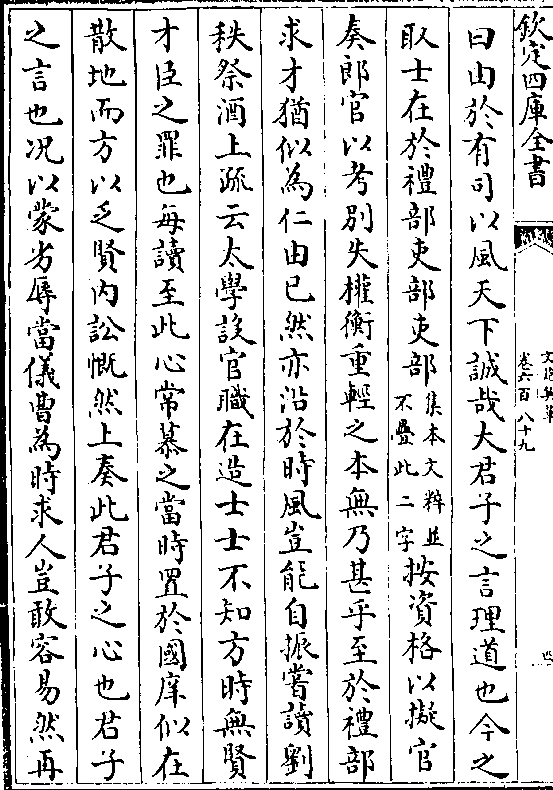 欽定四庫全書
文苑英華
卷六百八十九
四
曰由於有司以風天下誠哉大君子之言理道也今之
取士在於禮部吏部吏部集本文粹並不疊此二字按資格以擬官
奏郎官以考別失權衡重輕之本無乃甚乎至於禮部
求才猶似為仁由已然亦沿於時風豈能自振嘗讀劉
秩祭酒上疏云太學設官職在造士士不知方時無賢
才臣之罪也每讀至此心常慕之當時置於國庠似在
散地而方以乏賢内訟慨然上奏此君子之心也君子
之言也况以蒙劣辱當儀曹為時求人豈敢容易然再